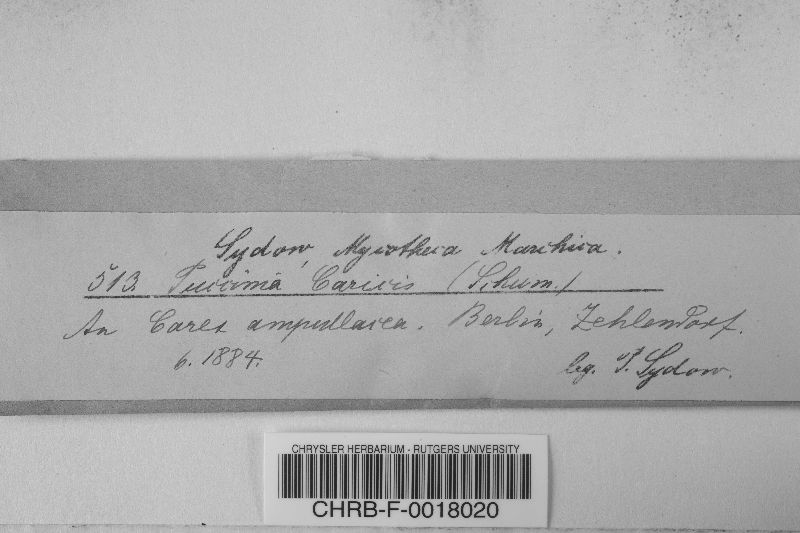 Sydow, Mycotheca Marchica.
513. Puccinia Caricis (Schum.)
An Carex ampullacea. Berlin, Zehlendorf.
6. 1884.
leg. P. Sydow.
CHRYSLER HERBARIUM - RUTGERS UNIVERSITY
CHRB-F-0018020